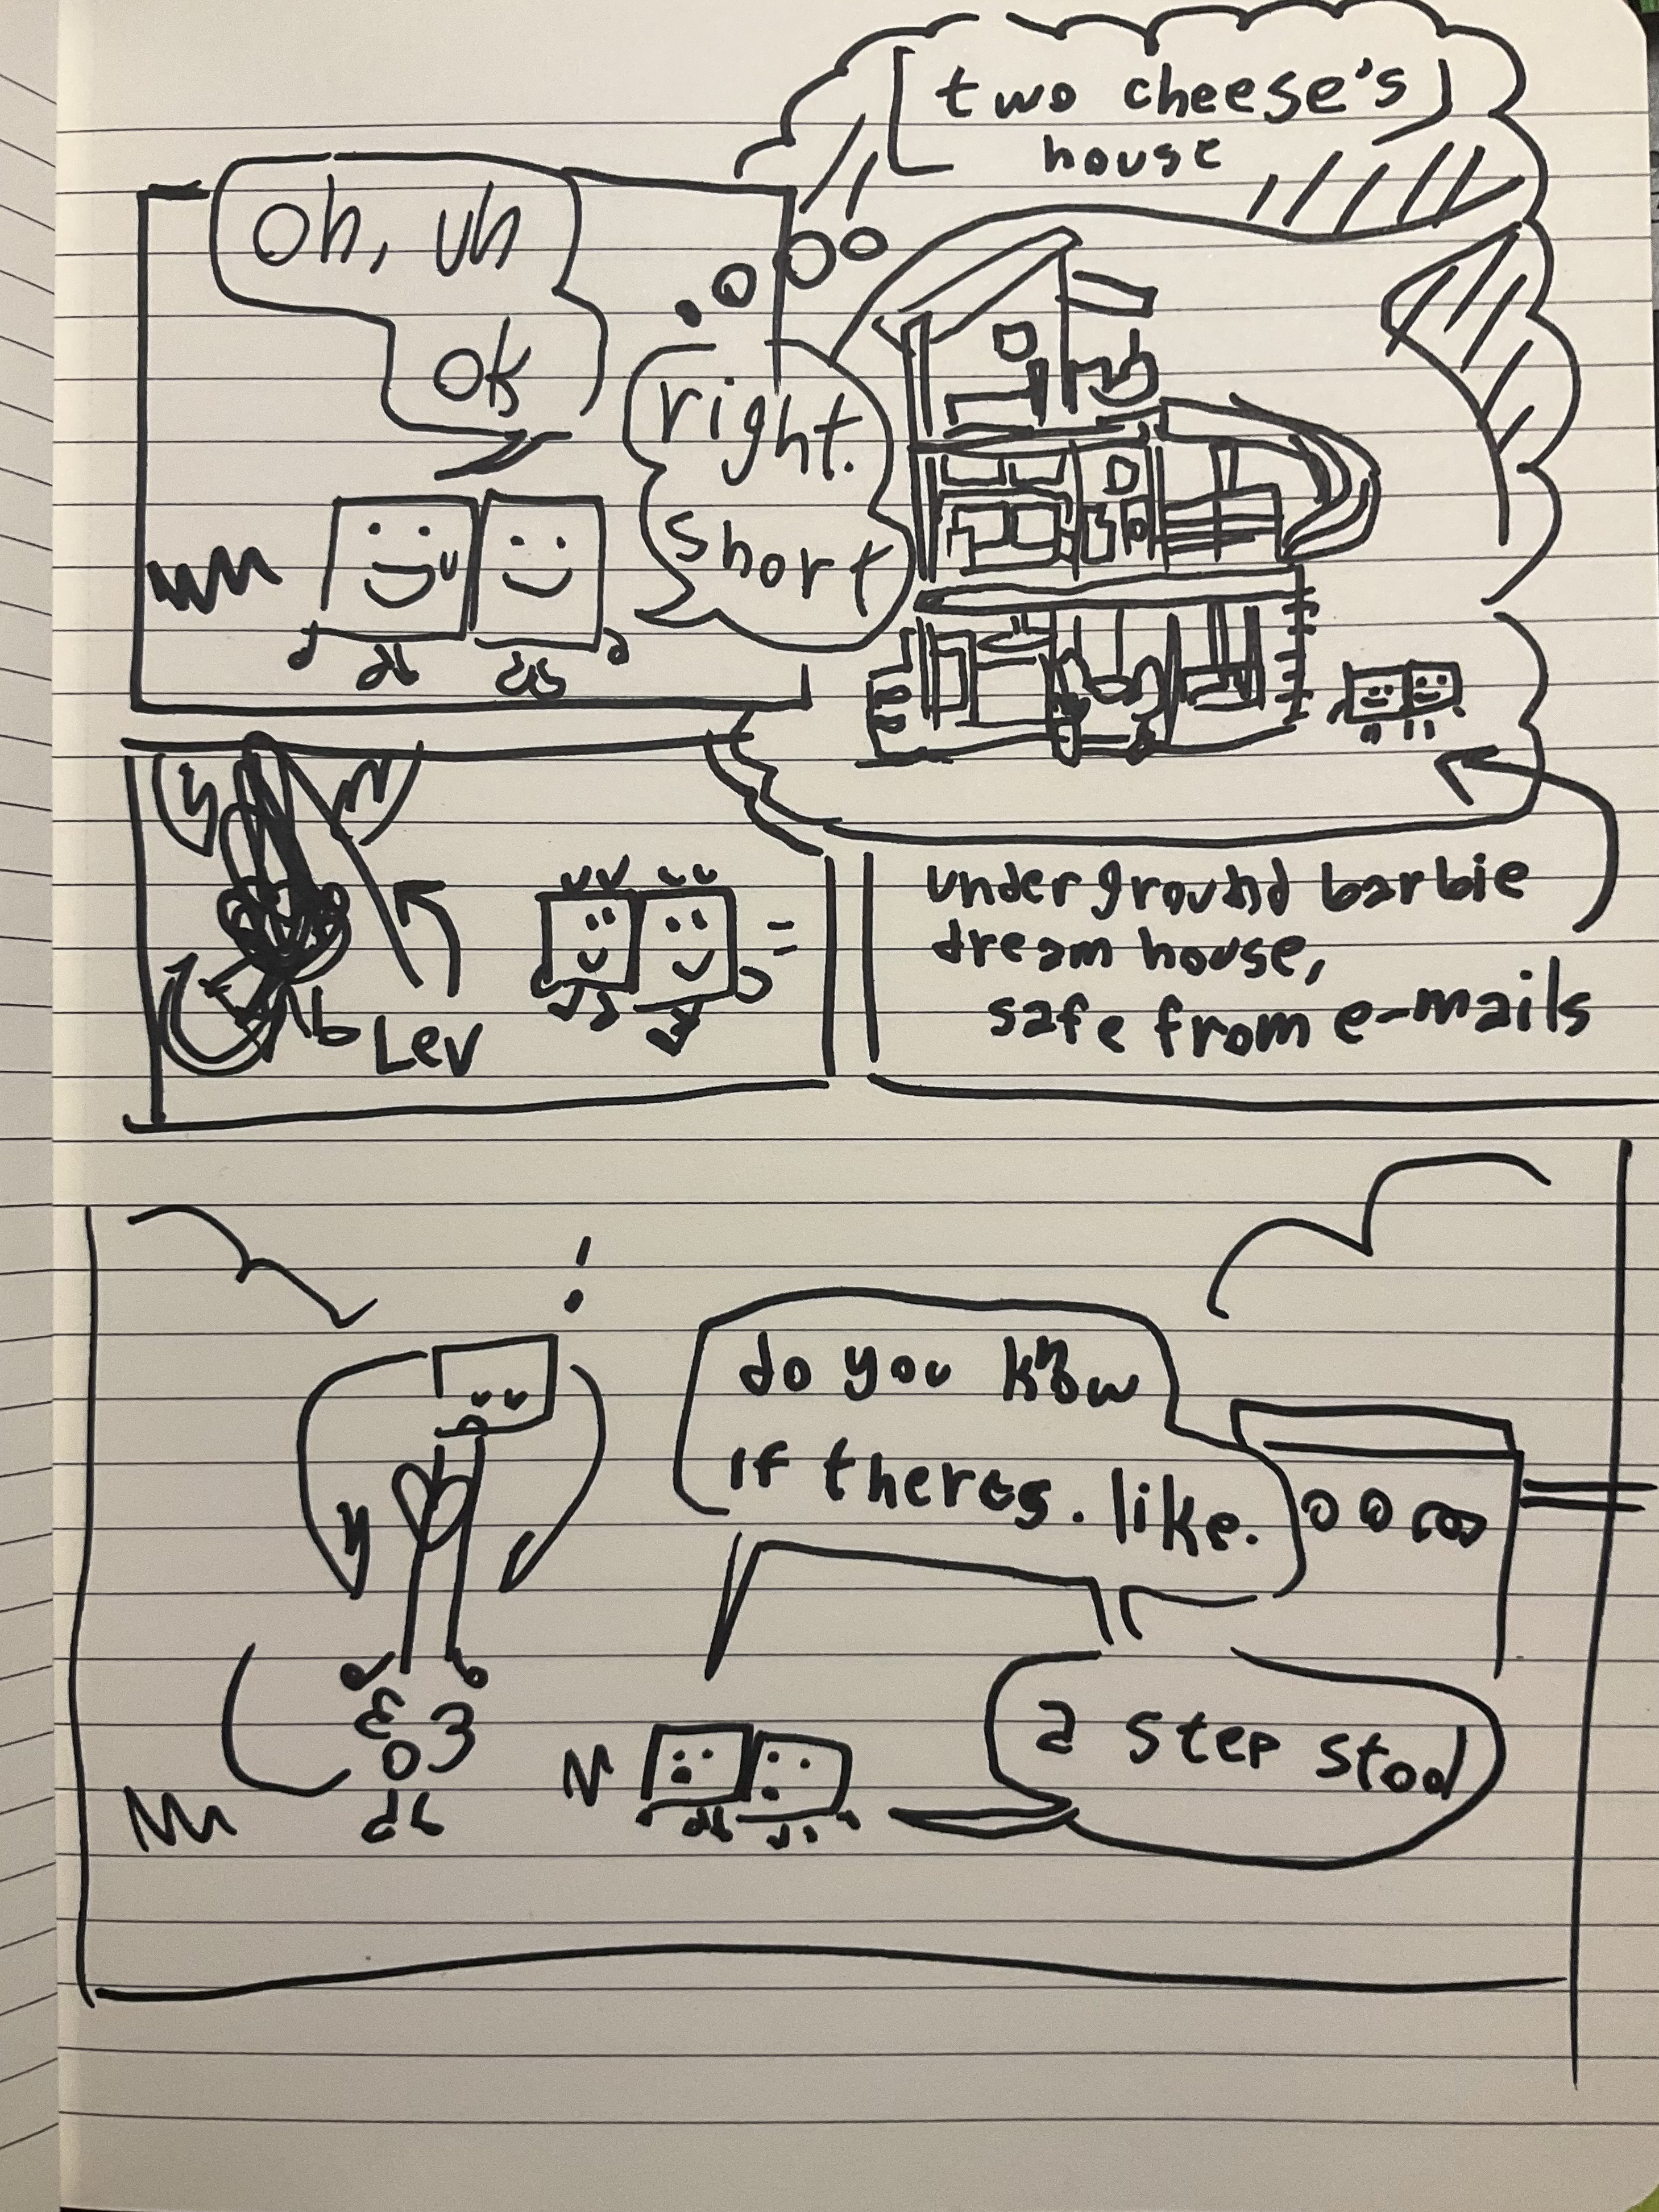 [two cheese's]
house
oh, uh
ok
right.
short
Lev
underground barbie
dream house,
safe from e-mails
!
do you know
if theres. like.
a step stool